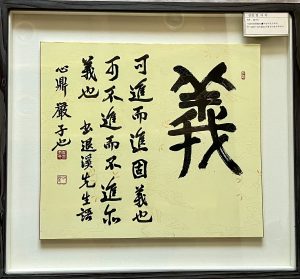 義
可進而進固義也
可不進而不進亦
義也 書退溪先生語
心鼎 嚴子也